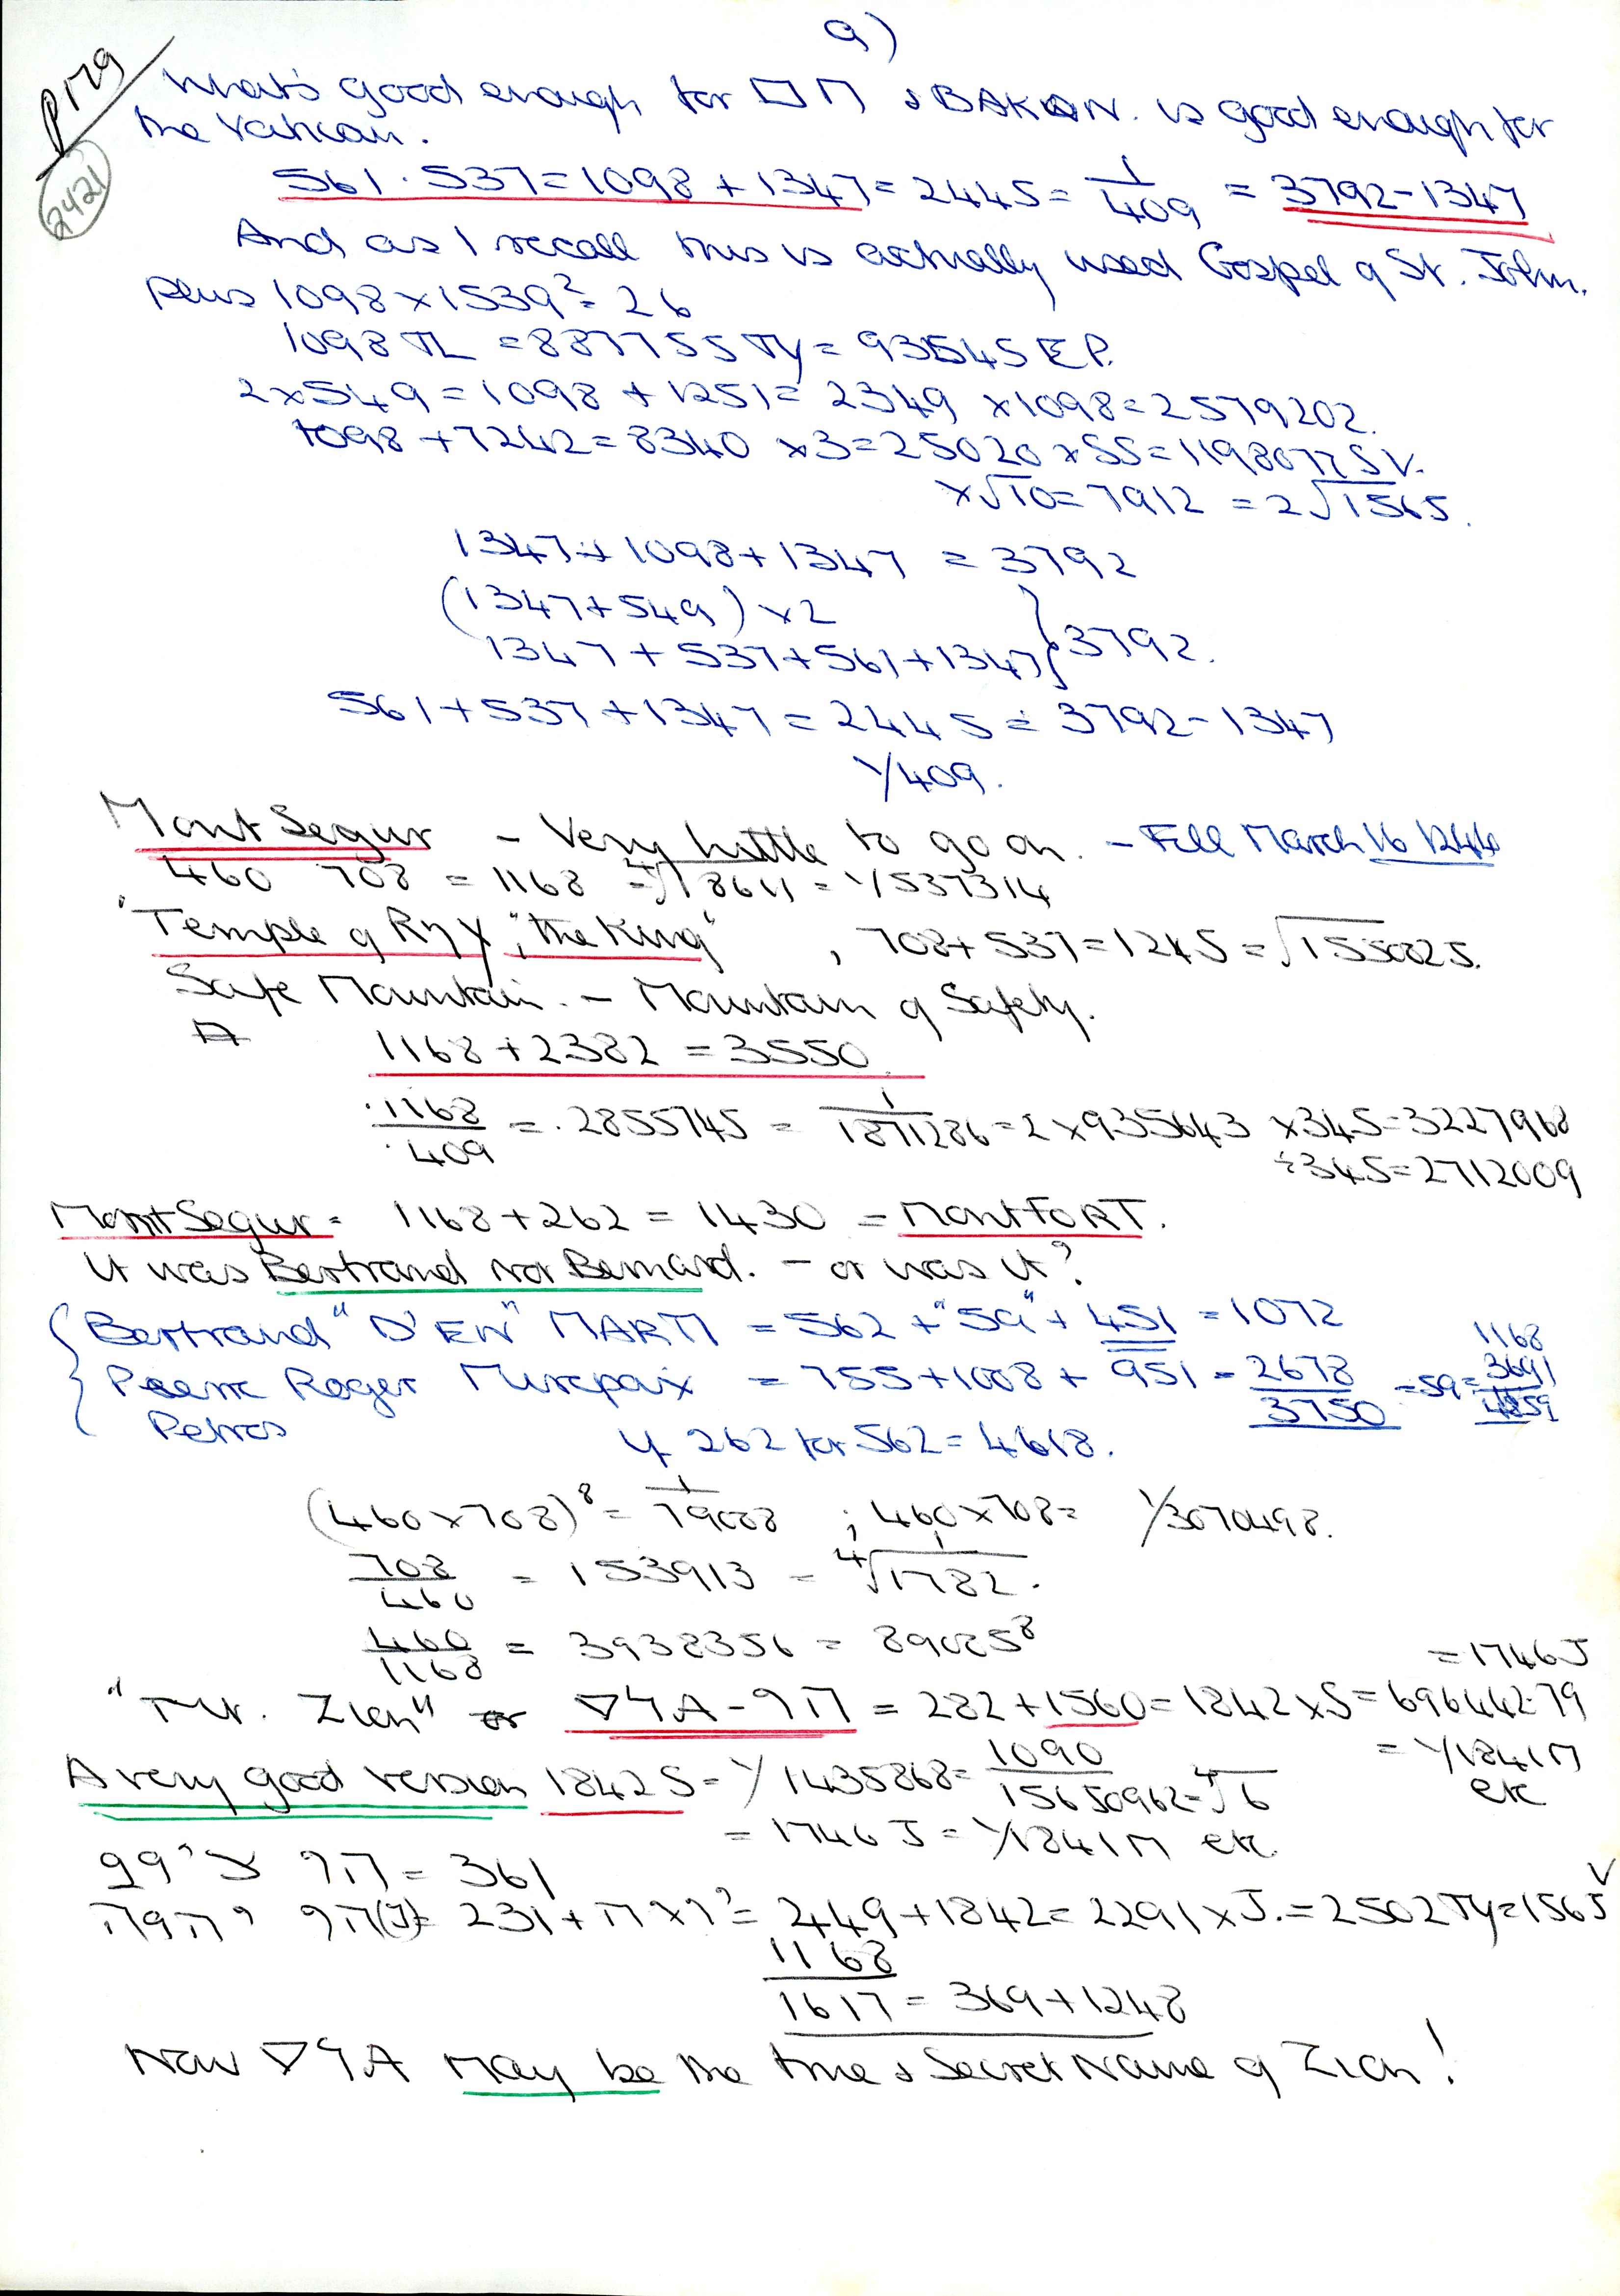 9)
P179
2421
What's good enough for □Π & BAKON. is good enough for
the Vatican.
561 · 537 = 1098 + 1347 = 2445 = 1/409 = 3792 - 1347
And as I recall this is actually used Gospel of St. John.
plus 1098 × 1539² = 26
1098 TL = 887755 Ty = 931545 EP.
2×549 = 1098 + 1251 = 2349 × 1098 = 2579202.
1098 + 7242 = 8340 × 3 = 25020 × 55 = 1198077 SV.
×√10 = 7912 = 2√1565.
1347 + 1098 + 1347 = 3792
(1347 + 549) × 2
1347 + 537 + 561 + 1347 } 3792.
561 + 537 + 1347 = 2445 = 3792 - 1347
1/409.
Mont Segur - Very little to go on. - Fell March 16 1244
460 708 = 1168 = ⁴√18611 = 1/537314
"Temple of " "the King" , 708 + 537 = 1245 = √1550025.
Safe Mountain. - Mountain of Safety.
1168 + 2382 = 3550
.1168/.409 = .2855745 = 1/1871286 = 2 × 935643 × 345 = 3227968
÷ 345 = 2712009
Mont Segur = 1168 + 262 = 1430 = MontFORT.
It was Bertrand not Bernard. - or was it?
Bertrand "D'EN" MARTI = 562 + "59" + 451 = 1072
Pierre Roger Mirepoix = 755 + 1008 + 951 = 2678
1168
3750 = 59 = 3691
Petros
If 262 for 562 = 4618.
(460 × 708)⁸ = 1/79088 ; 460 × 708 = 1/3070498.
708/460 = 153913 = ⁴√1/1782.
460/1168 = 3938356 = 89025⁸
= 1746 J
"Mr. Zion" or ▽ЧA - 9Π = 282 + 1560 = 1842 × S = 696442·79
= 1/1841Π
etc
A very good version 1842 S = 1/1435868 = 1090/15650962 = ⁴√6
= 1746 J = 1/1841Π etc.
9Π = 361
9Π(J) = 231 + Π × ? = 449 + 1842 = 2291 × J. = 2502 Ty = 156 J
1168
1617 = 369 + 1248
Now ▽ЧA may be the true & Secret Name of Zion!